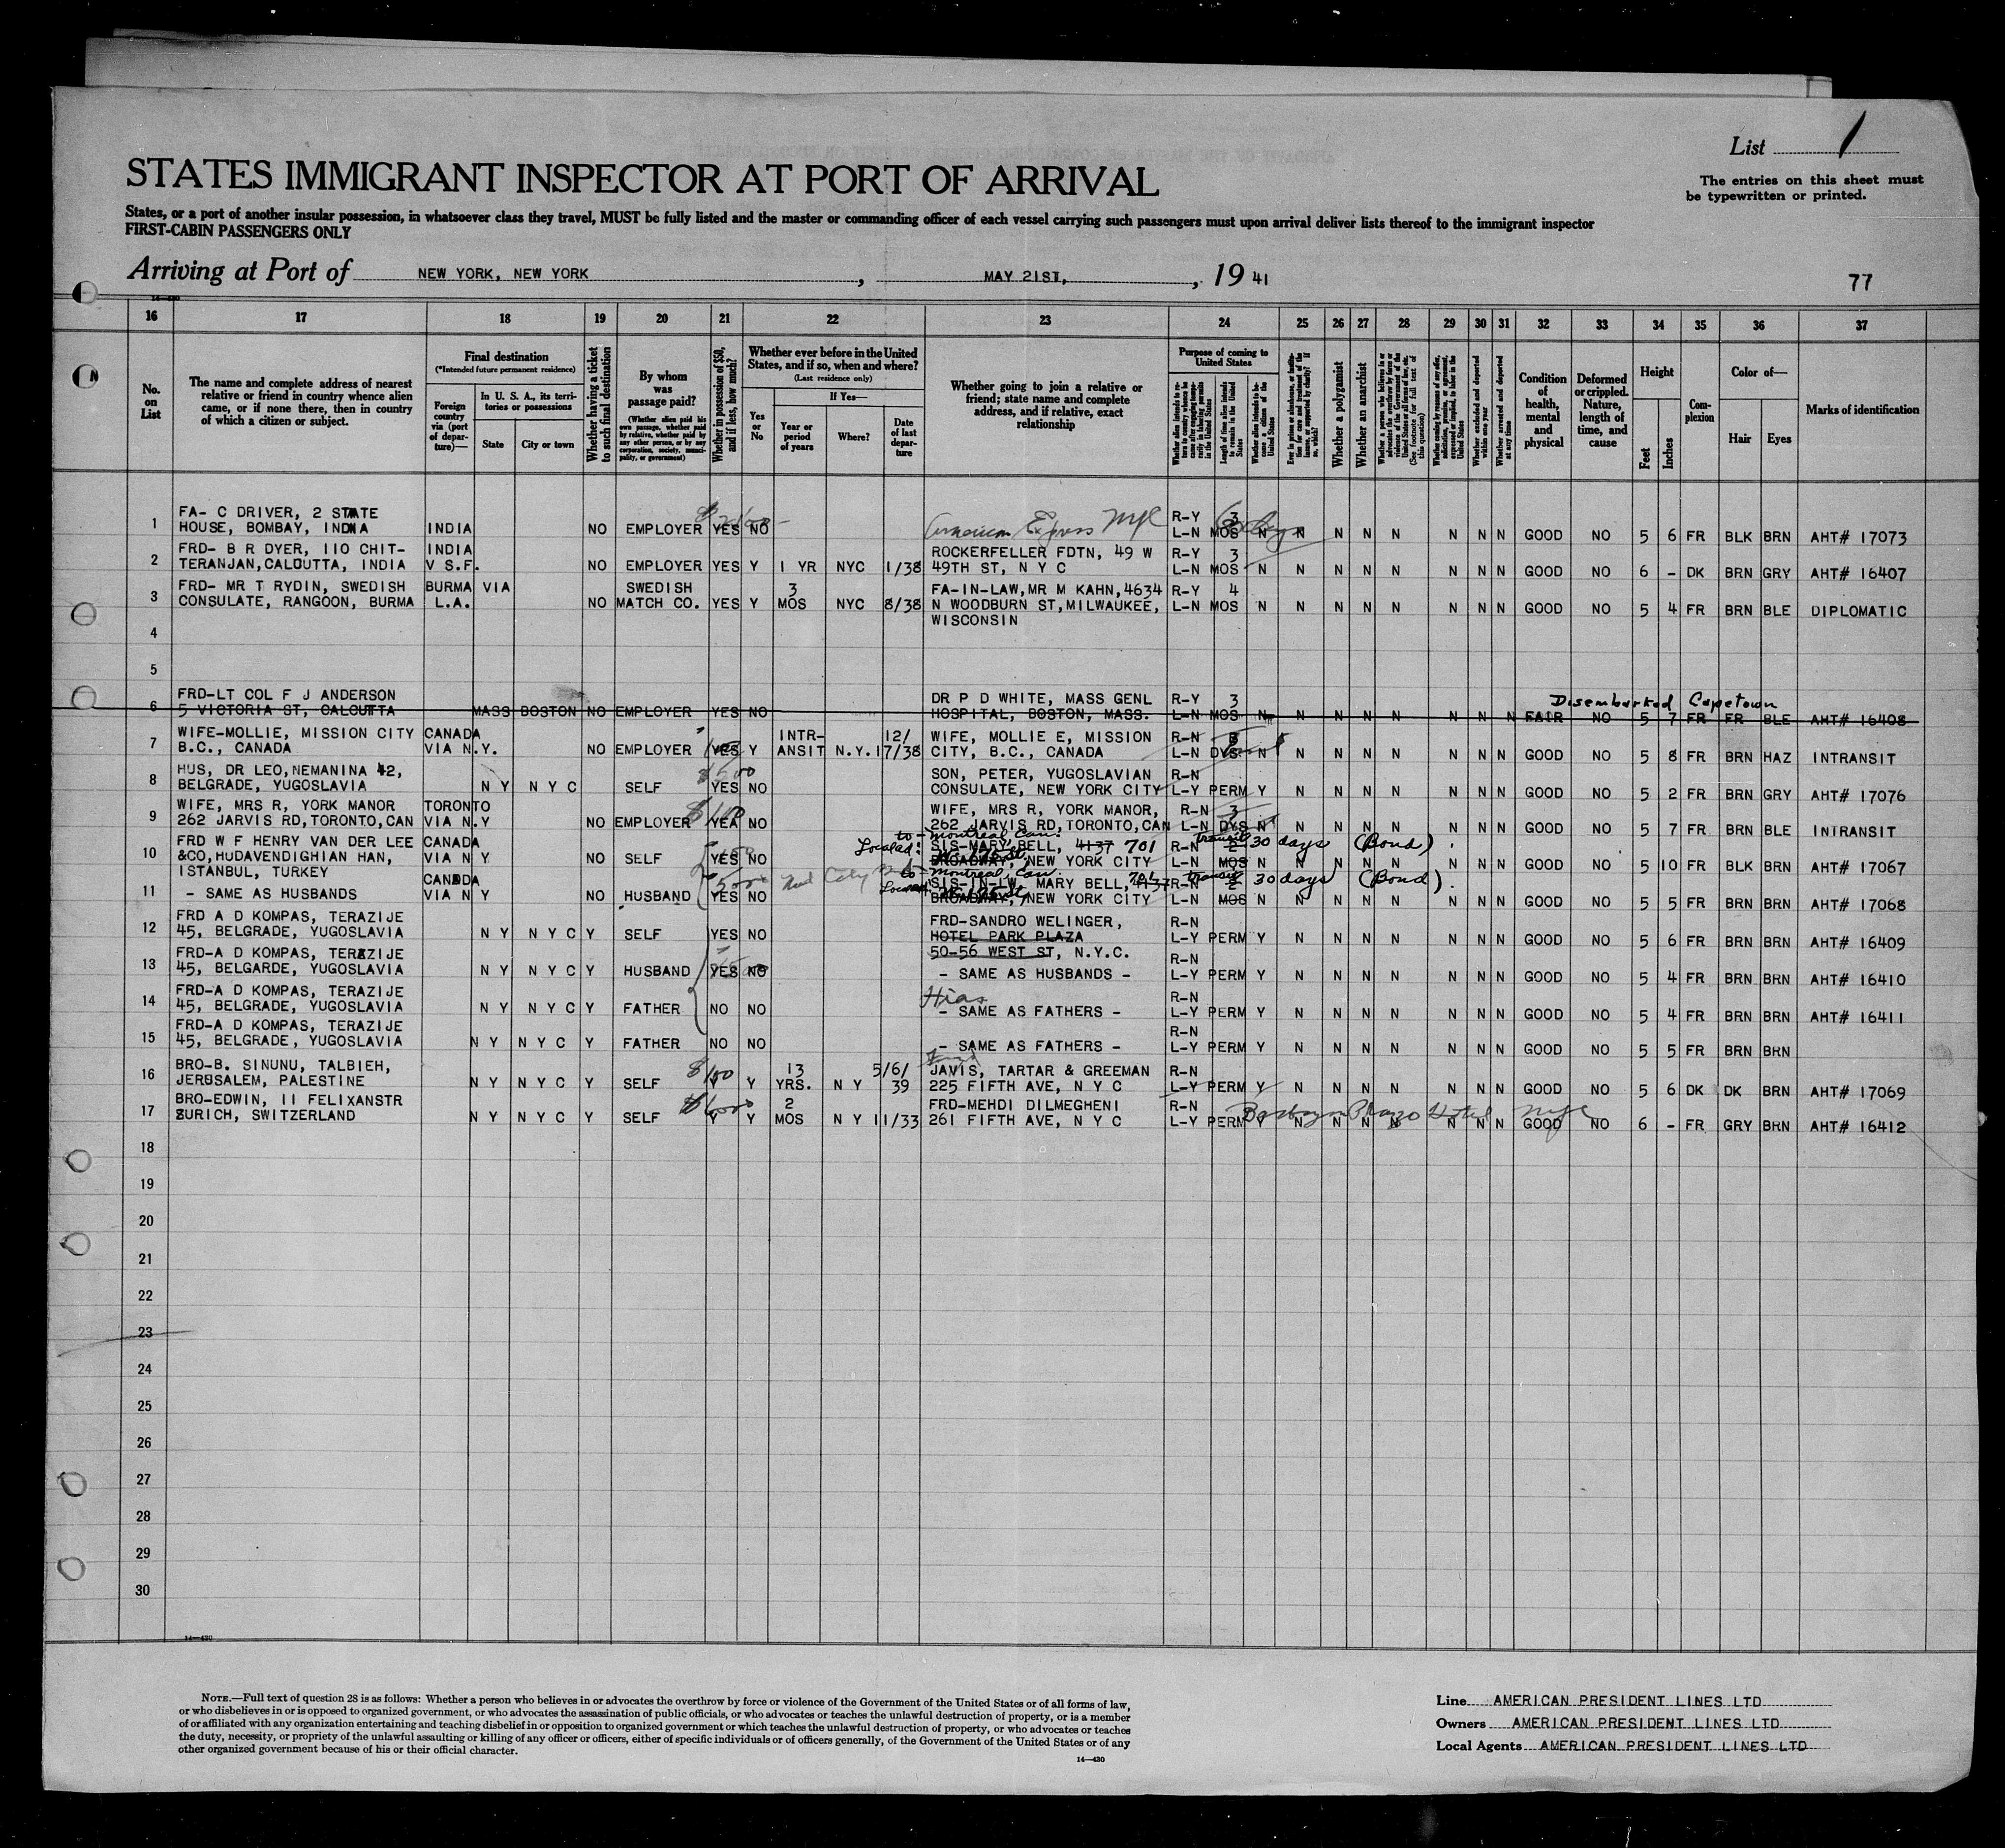 List 1
The entries on this sheet must
be typewritten or printed.
STATES IMMIGRANT INSPECTOR AT PORT OF ARRIVAL
States, or a port of another insular possession, in whatsoever class they travel, MUST be fully listed and the master or commanding officer of each vessel carrying such passengers must upon arrival deliver lists thereof to the immigrant inspector
FIRST-CABIN PASSENGERS ONLY
Arriving at Port of NEW YORK, NEW YORK, MAY 21ST, 19 41
77
14-430
16 17 18 19 20 21 22 23 24 25 26 27 28 29 30 31 32 33 34 35 36 37
No. on List
The name and complete address of nearest relative or friend in country whence alien came, or if none there, then in country of which a citizen or subject.
Final destination
(*Intended future permanent residence)
Foreign country via (port of departure)—
In U. S. A., its territories or possessions
State
City or town
Whether having a ticket to such final destination
By whom was passage paid?
(Whether alien paid his own passage, whether paid by relative, whether paid by any other person, or by any corporation, society, municipality, or government)
Whether in possession of $50, and if less, how much?
Whether ever before in the United States, and if so, when and where?
(Last residence only)
Yes or No
If Yes—
Year or period of years
Where?
Date of last departure
Whether going to join a relative or friend; state name and complete address, and if relative, exact relationship
Purpose of coming to United States
Length of time alien intends to remain in the United States
Whether alien intends to become a citizen of the United States
Whether a polygamist
Whether an anarchist
Whether excluded and deported within one year
Whether arrested and deported at any time
Condition of health, mental and physical
Deformed or crippled. Nature, length of time, and cause
Height
Feet
Inches
Complexion
Color of—
Hair
Eyes
Marks of identification
FA- C DRIVER, 2 STATE American Express NYC R-Y 3
1 HOUSE, BOMBAY, INDIA INDIA NO EMPLOYER YES NO L-N MOS N N N N N N N N GOOD NO 5 6 FR BLK BRN AHT# 17073
FRD- B R DYER, 110 CHIT- INDIA ROCKERFELLER FDTN, 49 W R-Y 3
2 TERANJAN,CALCUTTA, INDIA V S.F. NO EMPLOYER YES Y 1 YR NYC 1/38 49TH ST, N Y C L-N MOS N N N N N N N N GOOD NO 6 - DK BRN GRY AHT# 16407
FRD- MR T RYDIN, SWEDISH BURMA VIA SWEDISH 3 FA-IN-LAW,MR M KAHN,4634 R-Y 4
3 CONSULATE, RANGOON, BURMA L.A. NO MATCH CO. YES Y MOS NYC 8/38 N WOODBURN ST,MILWAUKEE, L-N MOS N N N N N N N N GOOD NO 5 4 FR BRN BLE DIPLOMATIC
WISCONSIN
4
5
FRD-LT COL F J ANDERSON DR P D WHITE, MASS GENL R-Y 3 Disembarked Capetown
6 5 VICTORIA ST, CALCUTTA MASS BOSTON NO EMPLOYER YES NO HOSPITAL, BOSTON, MASS. L-N MOS N N N N N N N N FAIR NO 5 7 FR FR BLE AHT# 16408
WIFE-MOLLIE, MISSION CITY CANADA INTR- 12/ WIFE, MOLLIE E, MISSION R-N
7 B.C., CANADA VIA N.Y. NO EMPLOYER YES Y ANSIT N.Y. 17/38 CITY, B.C., CANADA L-N DYS N N N N N N N N GOOD NO 5 8 FR BRN HAZ INTRANSIT
HUS, DR LEO,NEMANINA 42, SON, PETER, YUGOSLAVIAN R-N
8 BELGRADE, YUGOSLAVIA N Y N Y C SELF YES NO CONSULATE, NEW YORK CITY L-Y PERM Y N N N N N N N GOOD NO 5 2 FR BRN GRY AHT# 17076
WIFE, MRS R, YORK MANOR TORONTO WIFE, MRS R, YORK MANOR, R-N 3
9 262 JARVIS RD,TORONTO,CAN VIA N.Y NO EMPLOYER YEA NO 262 JARVIS RD,TORONTO,CAN L-N DYS N N N N N N N N GOOD NO 5 7 FR BRN BLE INTRANSIT
to - Montreal Can. transit
FRD W F HENRY VAN DER LEE CANADA Located: SIS-MARY BELL, 4137 701 R-N 2 30 days (Bond).
10 &CO,HUDAVENDIGHIAN HAN, VIA N Y NO SELF YES NO BROADWAY, NEW YORK CITY L-N MOS N N N N N N N N GOOD NO 5 10 FR BLK BRN AHT# 17067
ISTANBUL, TURKEY
to - Montreal, Can. transit
CANADA SIS-IN-LW, MARY BELL, 4137 701 R-N 2 30 days (Bond).
11 - SAME AS HUSBANDS VIA N Y NO HUSBAND YES NO BROADWAY, NEW YORK CITY L-N MOS N N N N N N N N GOOD NO 5 5 FR BRN BRN AHT# 17068
FRD A D KOMPAS, TERAZIJE FRD-SANDRO WELINGER, R-N
12 45, BELGRADE, YUGOSLAVIA N Y N Y C Y SELF YES NO HOTEL PARK PLAZA L-Y PERM Y N N N N N N N GOOD NO 5 6 FR BRN BRN AHT# 16409
FRD-A D KOMPAS, TERAZIJE 50-56 WEST ST, N.Y.C. R-N
13 45, BELGARDE, YUGOSLAVIA N Y N Y C Y HUSBAND YES NO - SAME AS HUSBANDS - L-Y PERM Y N N N N N N N GOOD NO 5 4 FR BRN BRN AHT# 16410
FRD-A D KOMPAS, TERAZIJE Hias R-N
14 45, BELGRADE, YUGOSLAVIA N Y N Y C Y FATHER NO NO - SAME AS FATHERS - L-Y PERM Y N N N N N N N GOOD NO 5 4 FR BRN BRN AHT# 16411
FRD-A D KOMPAS, TERAZIJE R-N
15 45, BELGRADE, YUGOSLAVIA N Y N Y C Y FATHER NO NO - SAME AS FATHERS - L-Y PERM Y N N N N N N N GOOD NO 5 5 FR BRN BRN
BRO-B. SINUNU, TALBIEH, $100 13 5/6/ JAVIS, TARTAR & GREEMAN R-N
16 JERUSALEM, PALESTINE N Y N Y C Y SELF Y Y YRS. N Y 39 225 FIFTH AVE, N Y C L-Y PERM Y N N N N N N N GOOD NO 5 6 DK DK BRN AHT# 17069
BRO-EDWIN, 11 FELIXANSTR 2 FRD-MEHDI DILMEGHENI R-N Barbizon Plaza Hotel NYC
17 ZURICH, SWITZERLAND N Y N Y C Y SELF Y Y MOS N Y 11/33 261 FIFTH AVE, N Y C L-Y PERM Y N N N N N N N GOOD NO 6 - FR GRY BRN AHT# 16412
18
19
20
21
22
23
24
25
26
27
28
29
30
14-430
NOTE.—Full text of question 28 is as follows: Whether a person who believes in or advocates the overthrow by force or violence of the Government of the United States or of all forms of law,
or who disbelieves in or is opposed to organized government, or who advocates the assassination of public officials, or who advocates or teaches the unlawful destruction of property, or is a member
of or affiliated with any organization entertaining and teaching disbelief in or opposition to organized government or which teaches the unlawful destruction of property, or who advocates or teaches
the duty, necessity, or propriety of the unlawful assaulting or killing of any officer or officers, either of specific individuals or of officers generally, of the Government of the United States or of any
other organized government because of his or their official character.
14-430
Line AMERICAN PRESIDENT LINES LTD
Owners AMERICAN PRESIDENT LINES LTD
Local Agents AMERICAN PRESIDENT LINES LTD